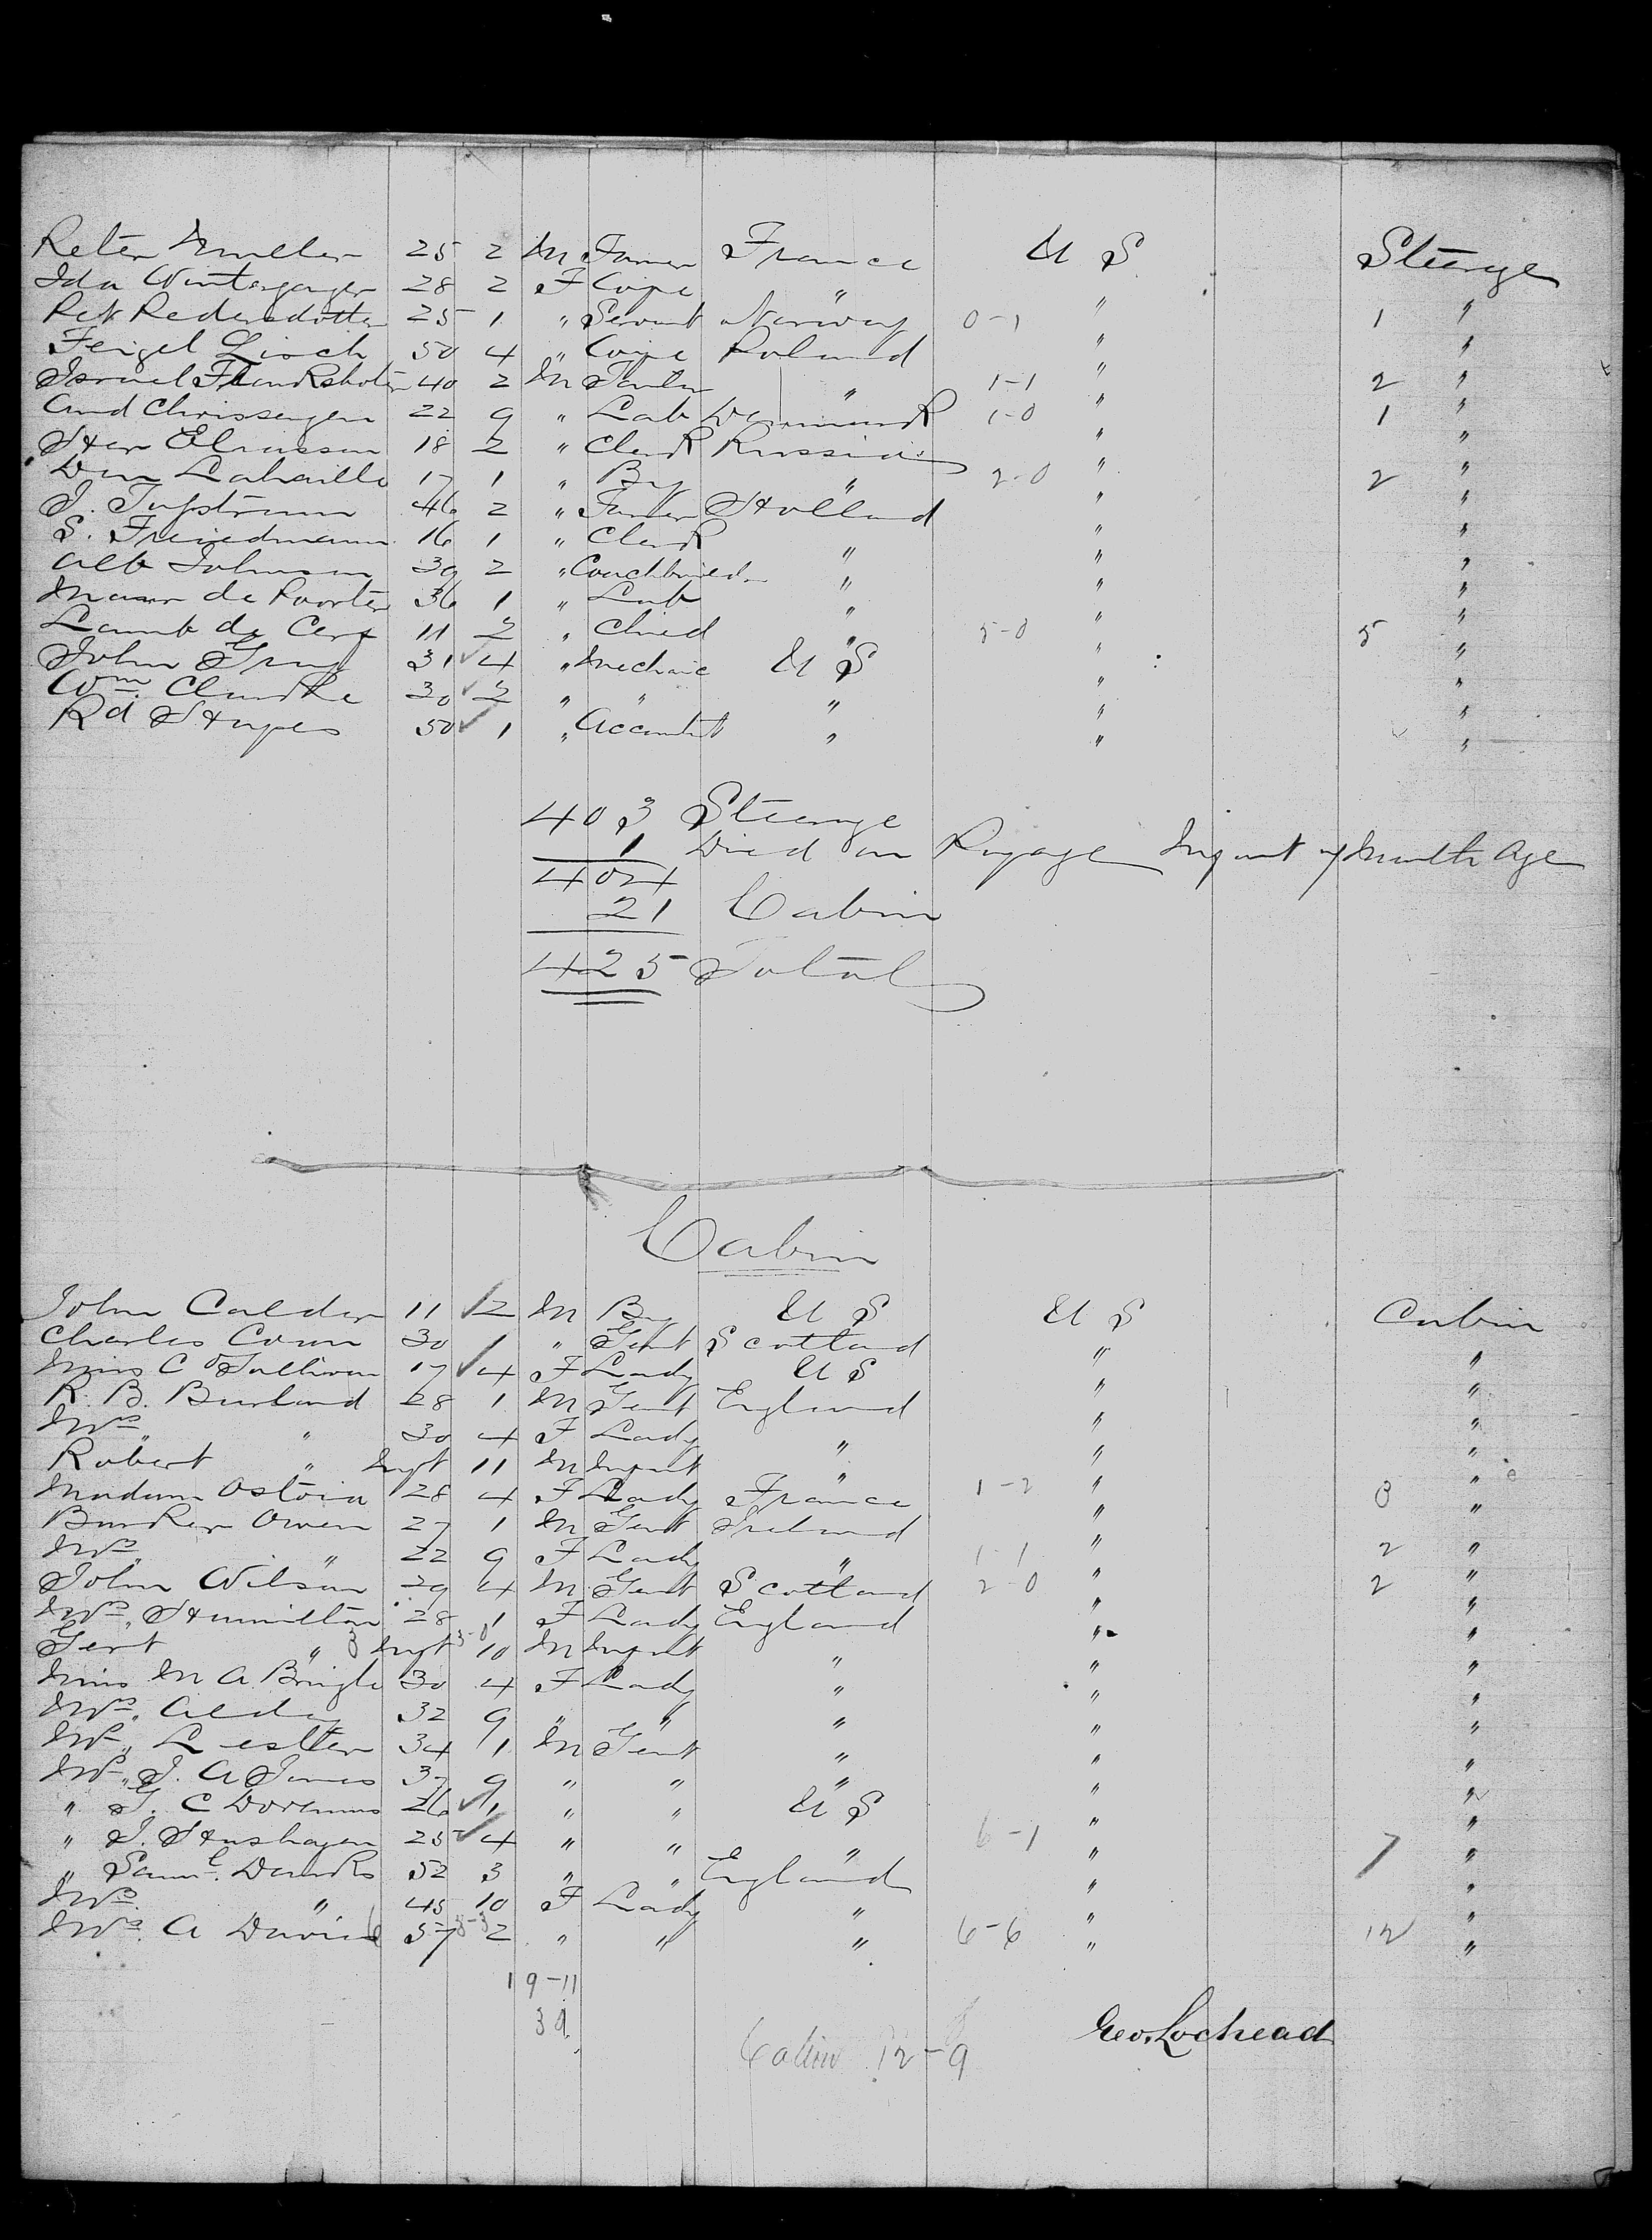 Peter Muller 25 2 M Farmer France U S Steerage
Ida 28 2 F Wife " " "
Pet Pedersdotter 25 1 " Servant Norway 0-1 " 1 "
Feigel Lisch 50 4 " Wife Poland " "
Israel 40 2 M " 1-1 " 2 "
And 22 9 " Lab Denmark 1-0 " 1 "
18 2 " Clerk Russia " "
Lahaille 17 1 " Boy " 2-0 " 2 "
J. 46 2 " Farmer Holland " "
S. Friedmann 16 1 " Clerk " " "
Alb Johnson 39 2 " Coachbuilder " " "
de Poorter 36 1 " Lab " " "
11 2 " Child " 5-0 " 5 "
John Gray 31 4 " Mechanic U S " "
Wm Clarke 30 2 " " " " "
Rd Hayes 50 1 " Accountt " " "
403 Steerage
1 Died on Voyage Infant Month Age
404
21 Cabin
425 Total
Cabin
John Calder 11 2 M Boy U S U S Cabin
Charles Conn 30 1 " Gent Scotland " "
Miss C O'Sullivan 17 4 F Lady U S " "
R. B. Burland 28 1 M Gent England " "
Mrs " 30 4 F Lady " " "
Robert " Inft 11 M Infant " " "
Madam 28 4 F Lady France 1-2 " 3 "
Owen 27 1 M Gent Ireland " "
Mrs " 22 9 F Lady " 1-1 " 2 "
John Wilson 29 4 M Gent Scotland 2-0 " 2 "
Mrs Hamilton 28 1 F Lady England " "
Gert " 3 Inft 3-0 10 M Infant " " "
Miss M A Bringle 30 4 F Lady " " "
Mrs 32 9 " " " " "
Mr Lester 34 1 M Gent " " "
Mr J. A James 37 9 " " " " "
" G. C Doremus 26 1 " " U S " "
" J. 25 4 " " " 6-1 " 7 "
" Saml. Danks 52 3 " " England " "
Mrs. " 45 10 F Lady " " "
Mrs. A 57 2 " " " 6-6 " 12 "
19-11
30
Cabin 12-9
Geo. Lochead